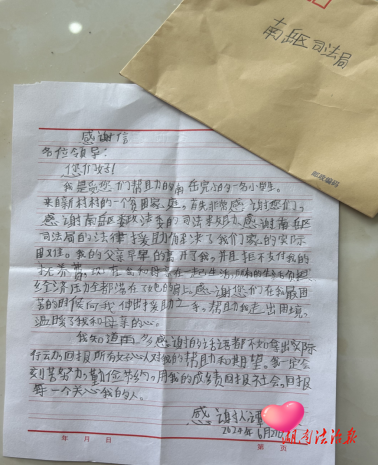 南岳区司法局
邮政编码
感谢信
各位领导:
您们好!
我是您们帮助力的 在 的一名小学生。
来 村的一个贫困家庭。首先非常感谢您们,
感谢南岳区委政法委的司法 感谢南岳区
司法局的法律援助 解决了我们家的实际
困难。我的父亲早早的离开了我。并且拒不支付我的
抚养费。 在一起生活 所有的
经济压力全都落在 的肩上。感谢您们在我最困
难的时候向我伸出援助之手。帮助我走出困境,
温暖了我和母亲的心。
我知道再多感谢的话语都不如拿出实际
行动为回报所有好心人对我的帮助和期望。我一定会
刻苦努力,勤俭节约,用我的成绩回报社会。回报
每一个关心我的人。
感谢人:
2024年6月21日
年 月 日 第 页
湖南法治报